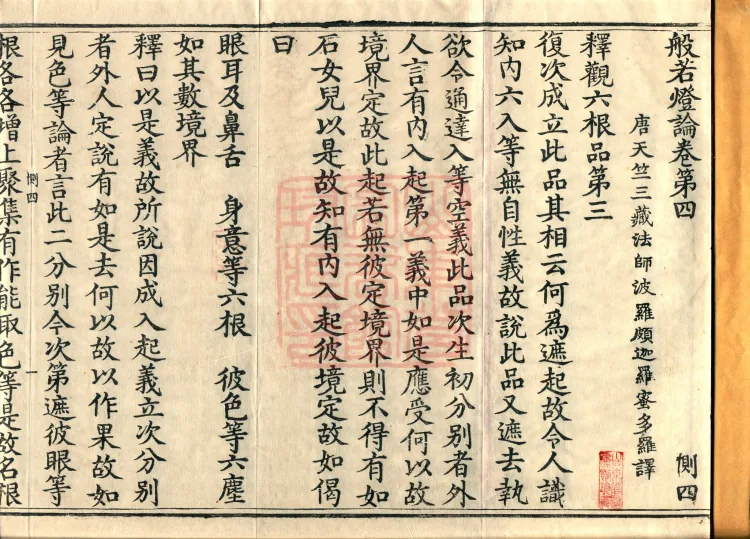 般若燈論卷第四　惻四
唐天竺三藏法師波羅頗迦羅蜜多羅譯
釋觀六根品第三
復次成立此品其相云何爲遮起故令人識
知內六入等無自性義故說此品又遮去執
欲令通達入等空義此品次生初分別者外
人言有內入起第一義中如是應受何以故
境界定故此起若無彼定境界則不得有如
石女兒以是故知有內入起彼境定故如偈
曰
眼耳及鼻舌　身意等六根　彼色等六塵
如其數境界
釋曰以是義故所說因成入起義立次分別
者外人定說有如是去何以故以作果故如
見色等論者言此二分別今次第遮彼眼等
惻四　一
根各各增上聚集有作能取色等是故名根